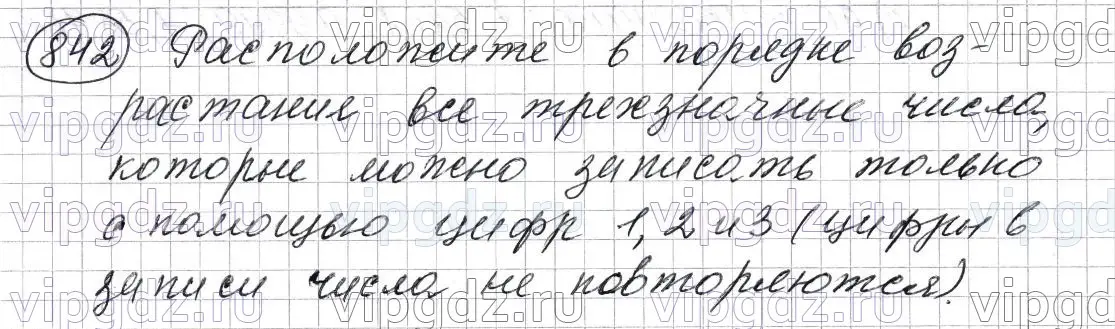 842 Расположите в порядке воз-
растания все трехзначные числа,
которые можно записать только
с помощью цифр 1, 2 и 3 (цифры в
записи числа не повторяются).